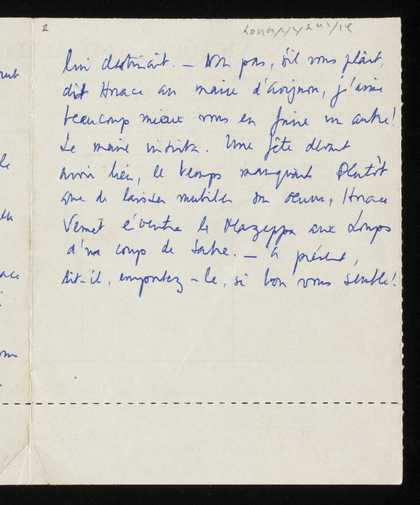 2
lui destinait. — Non pas, s'il vous plaît,
dit Horace au maire d'Avignon, j'aime
beaucoup mieux vous en faire un autre!
Le maire insista. Une fête devant
avoir lieu, le temps manquant. Plutôt
que de laisser mutiler son œuvre, Horace
Vernet éventra le Mazeppa aux Loups
d'un coup de sabre. — à présent,
dit-il, emportez-le, si bon vous semble!